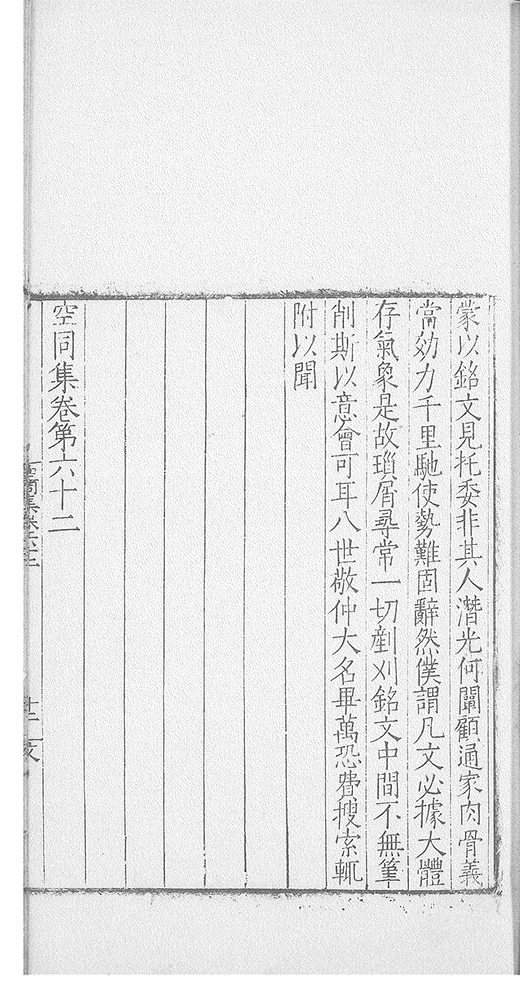 蒙以銘文見托委非其人潛光何闡顧通家肉骨義
當効力千里馳使勢難固辭然僕謂凡文必據大體
存氣象是故瑣屑尋常一切剷刈銘文中間不無筆
削斯以意會可耳八世敬仲大名畢萬恐費搜索輒
附以聞
空同集卷第六十二
空同集卷六十二